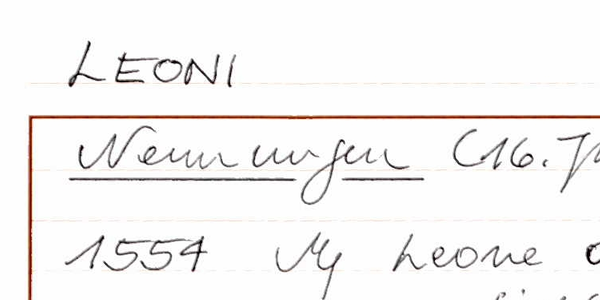 LEONI
Nennungen (16. J
1554 Mg Leone